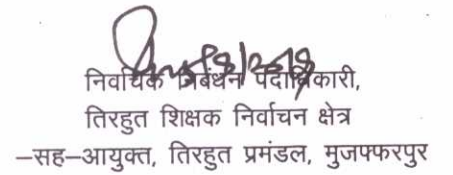 निर्वाचक निबंधन पदाधिकारी,
तिरहुत शिक्षक निर्वाचन क्षेत्र
–सह–आयुक्त, तिरहुत प्रमंडल, मुजफ्फरपुर